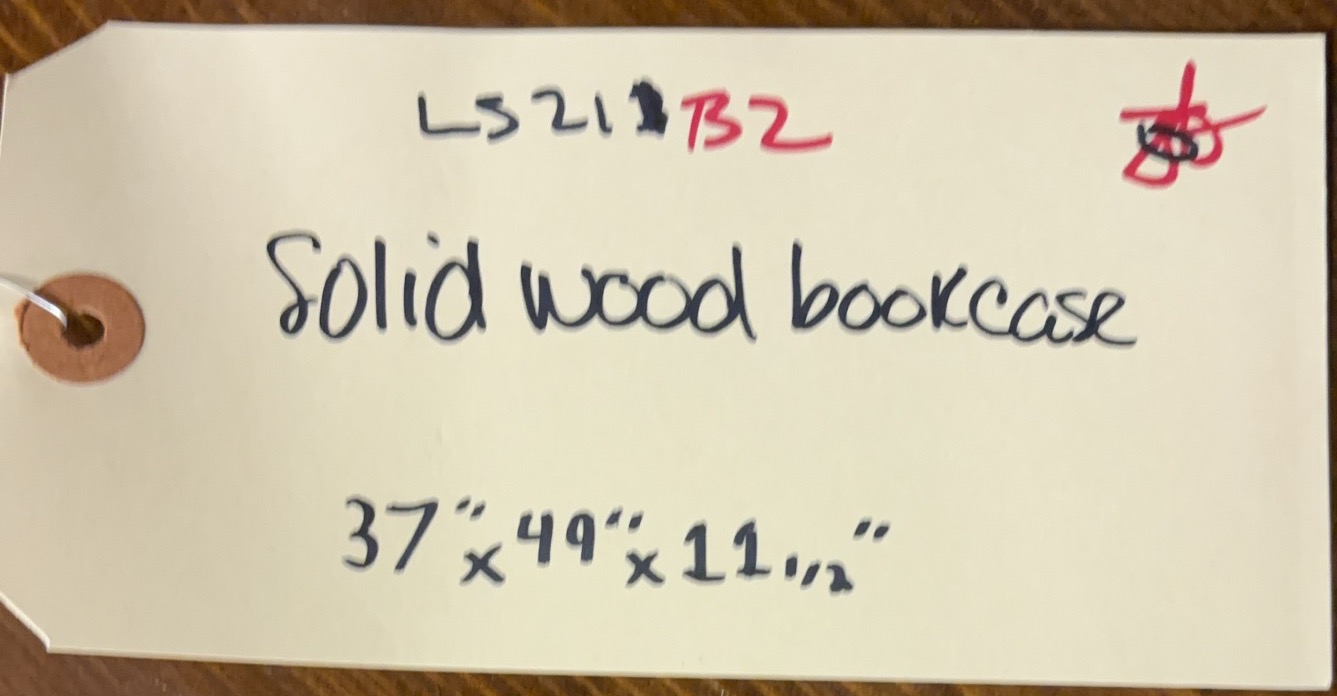 LS211B2
Solid wood bookcase
37" x 49" x 11 1/2"